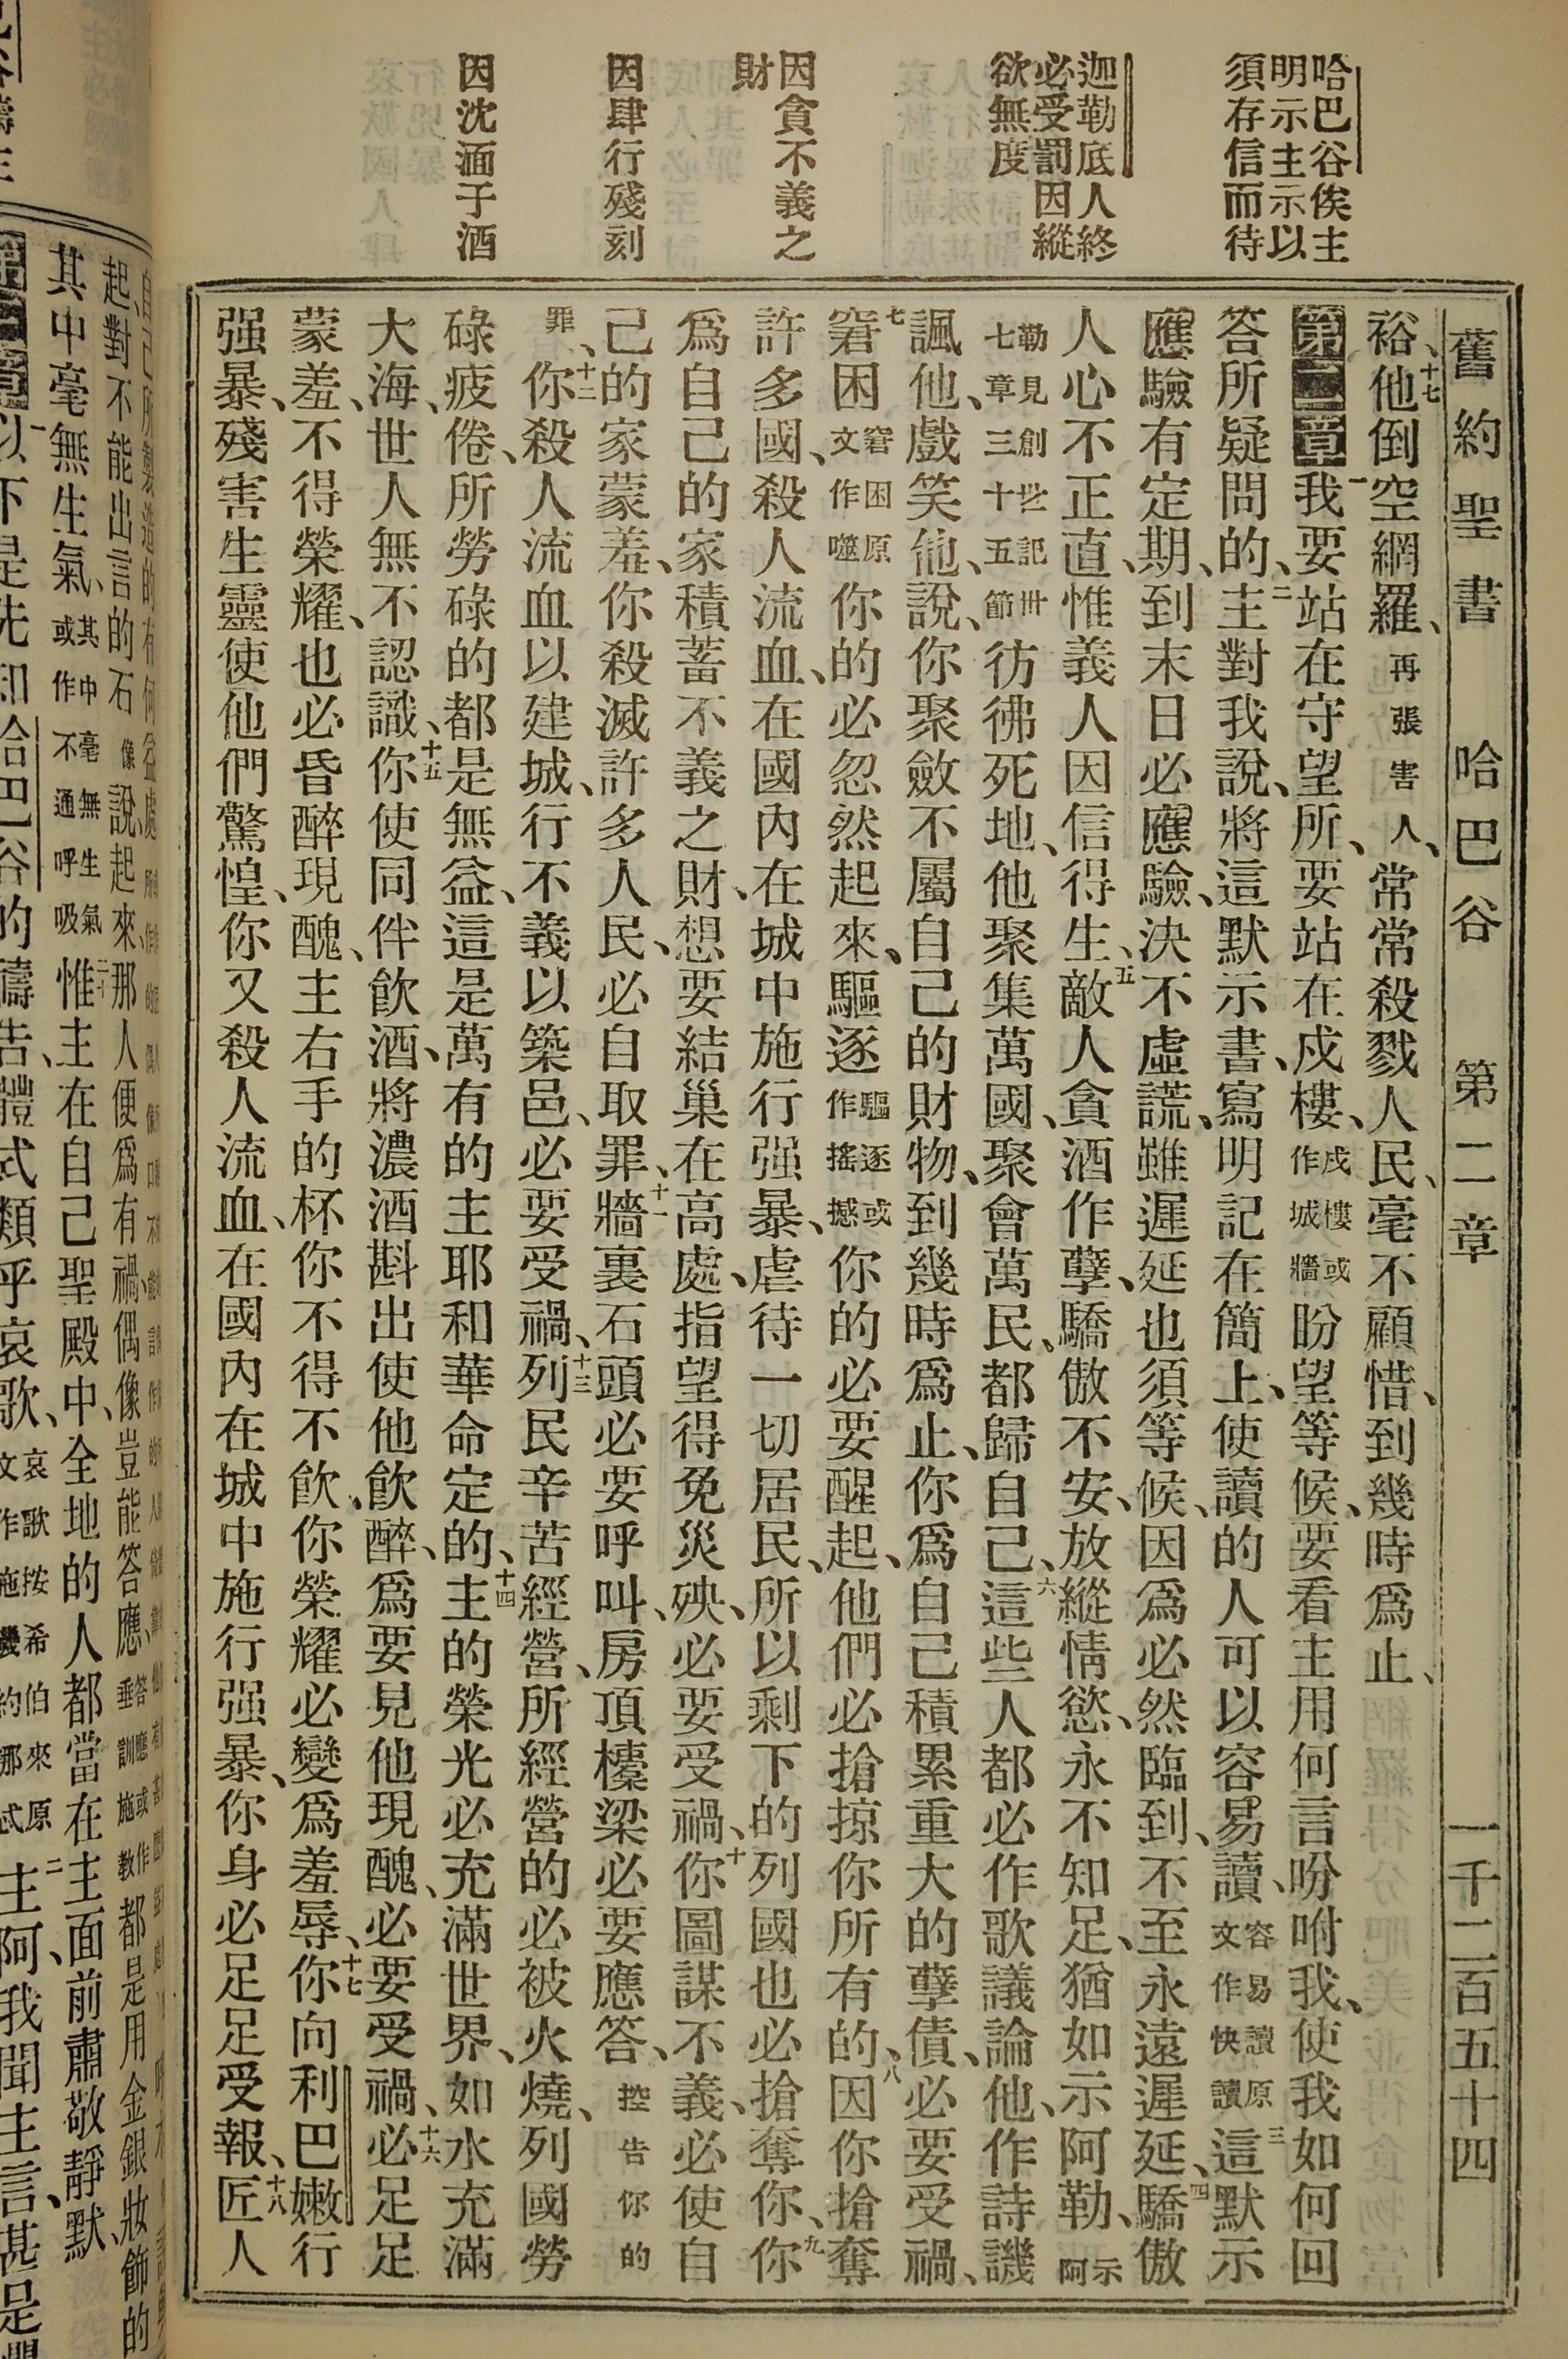 舊約聖書 哈巴谷 第二章 一千二百五十四
哈巴谷俟主
明示主示以
須存信而待
迦勒底人終
必受罰因縱
欲無度
因貪不義之
財
因肆行殘刻
因沈湎于酒
裕、十七他倒空網羅、再張害人、常常殺戮人民、毫不顧惜、到幾時爲止、
第二章一我要站在守望所、要站在戍樓、戍樓或作城牆盼望等候、要看主用何言吩咐我、使我如何回
答所疑問的、二主對我說、將這默示書、寫明記在簡上、使讀的人可以容易讀、容易讀原文作快讀三這默示
應驗有定期、到末日必應驗、決不虛謊、雖遲延也須等候、因爲必然臨到、不至永遠遲延、四驕傲
人心不正直、惟義人因信得生、五敵人貪酒作孽、驕傲不安、放縱情慾、永不知足、猶如示阿勒、示阿
勒見創世記卅七章三十五節彷彿死地、他聚集萬國、聚會萬民、都歸自己、六這些人都必作歌議論他、作詩譏
諷他、戲笑他、說、你聚斂不屬自己的財物、到幾時爲止、你爲自己積累重大的孽債、必要受禍、
七窘困窘困原文作噬你的必忽然起來、驅逐驅逐或作搖撼你的必要醒起、他們必搶掠你所有的、八因你搶奪
許多國、殺人流血、在國內在城中施行强暴、虐待一切居民、所以剩下的列國也必搶奪你、九你
爲自己的家積蓄不義之財、想要結巢在高處、指望得免災殃、必要受禍、十你圖謀不義、必使自
己的家蒙羞、你殺滅許多人民、必自取罪、十一牆裏石頭必要呼叫、房頂檁梁必要應答、控告你的
罪、十二你殺人流血以建城、行不義以築邑、必要受禍、十三列民辛苦經營、所經營的必被火燒、列國勞
碌疲倦、所勞碌的都是無益、這是萬有的主耶和華命定的、十四主的榮光必充滿世界、如水充滿
大海、世人無不認識、十五你使同伴飮酒、將濃酒斟出使他飮醉、爲要見他現醜、必要受禍、十六必足足
蒙羞、不得榮耀、也必昏醉現醜、主右手的杯你不得不飮、你榮耀必變爲羞辱、十七你向利巴嫩行
强暴、殘害生靈使他們驚惶、你又殺人流血、在國內在城中施行强暴、你身必足足受報、十八匠人
起對不能出言的石像說、起來、那人便爲有禍、偶像豈能答應、答應或作垂訓施教都是用金銀妝飾的
其中毫無生氣、其中毫無生氣或作不通呼吸惟主在自己聖殿中、全地的人都當在主面前肅敬靜默、
以下是先知哈巴谷的禱告、體式類乎哀歌、二主阿、我聞主言甚是